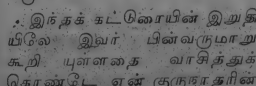 . இந்தக் கட்டுரையின் இறுதி
யிலே இவர் பின்வருமாறு
கூறி யுள்ளதை வாசித்துக்
கொண்டே என் குருநாதரின்